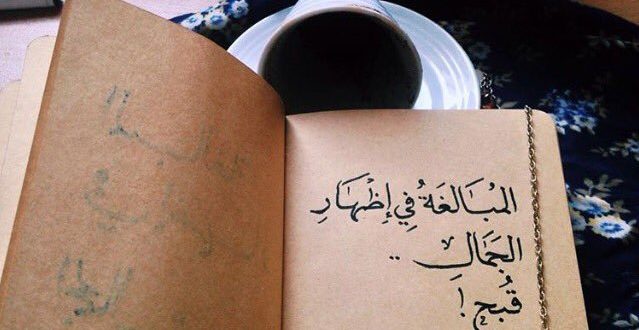 المُبَالغَةُ فِي إظْهَارِ
الجَمَالِ ..
قُبح !